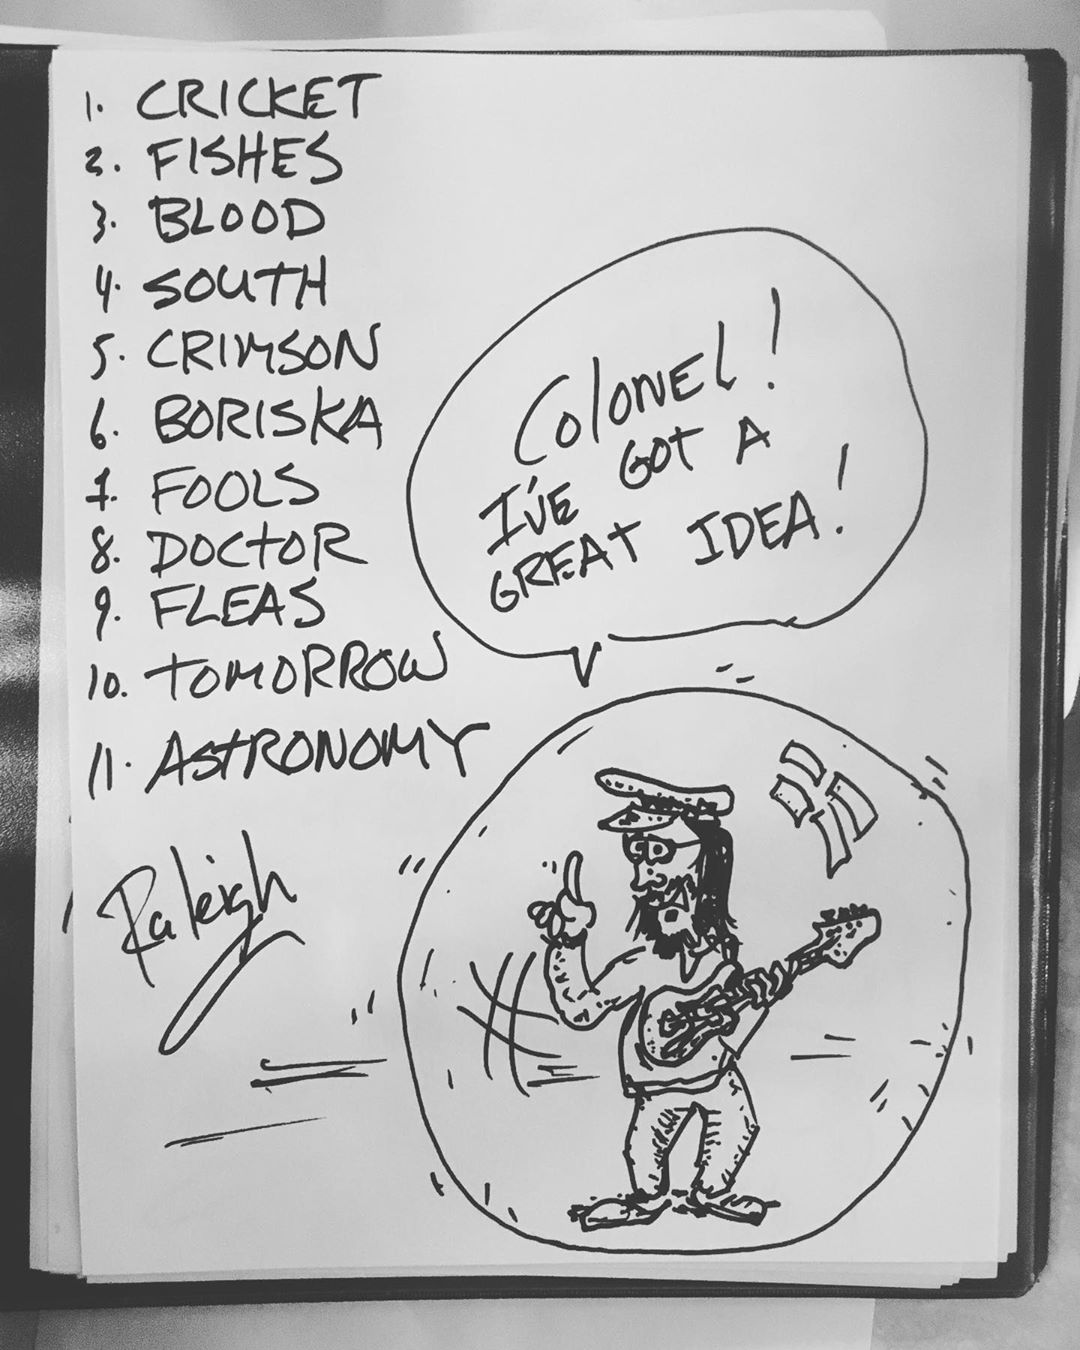 1. CRICKET
2. FISHES
3. BLOOD
4. SOUTH
5. CRIMSON
6. BORISKA
7. FOOLS
8. DOCTOR
9. FLEAS
10. TOMORROW
11. ASTRONOMY
Raleigh
Colonel!
I'VE GOT A
GREAT IDEA!